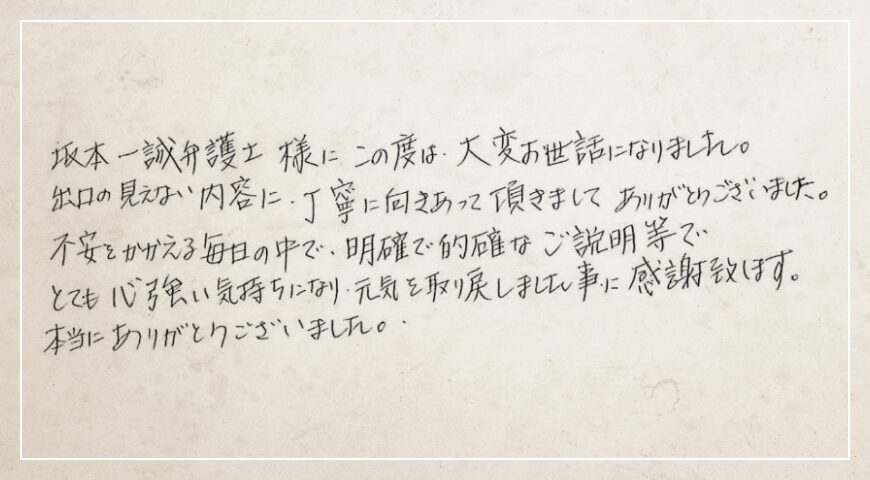 坂本一誠弁護士 様に この度は、大変お世話になりました。
出口の見えない内容に、丁寧に向きあって頂きまして ありがとうございました。
不安をかかえる毎日の中で、明確で的確な ご説明等で
とても心強い気持ちになり、元気を取り戻しました事に 感謝致します。
本当にありがとうございました。